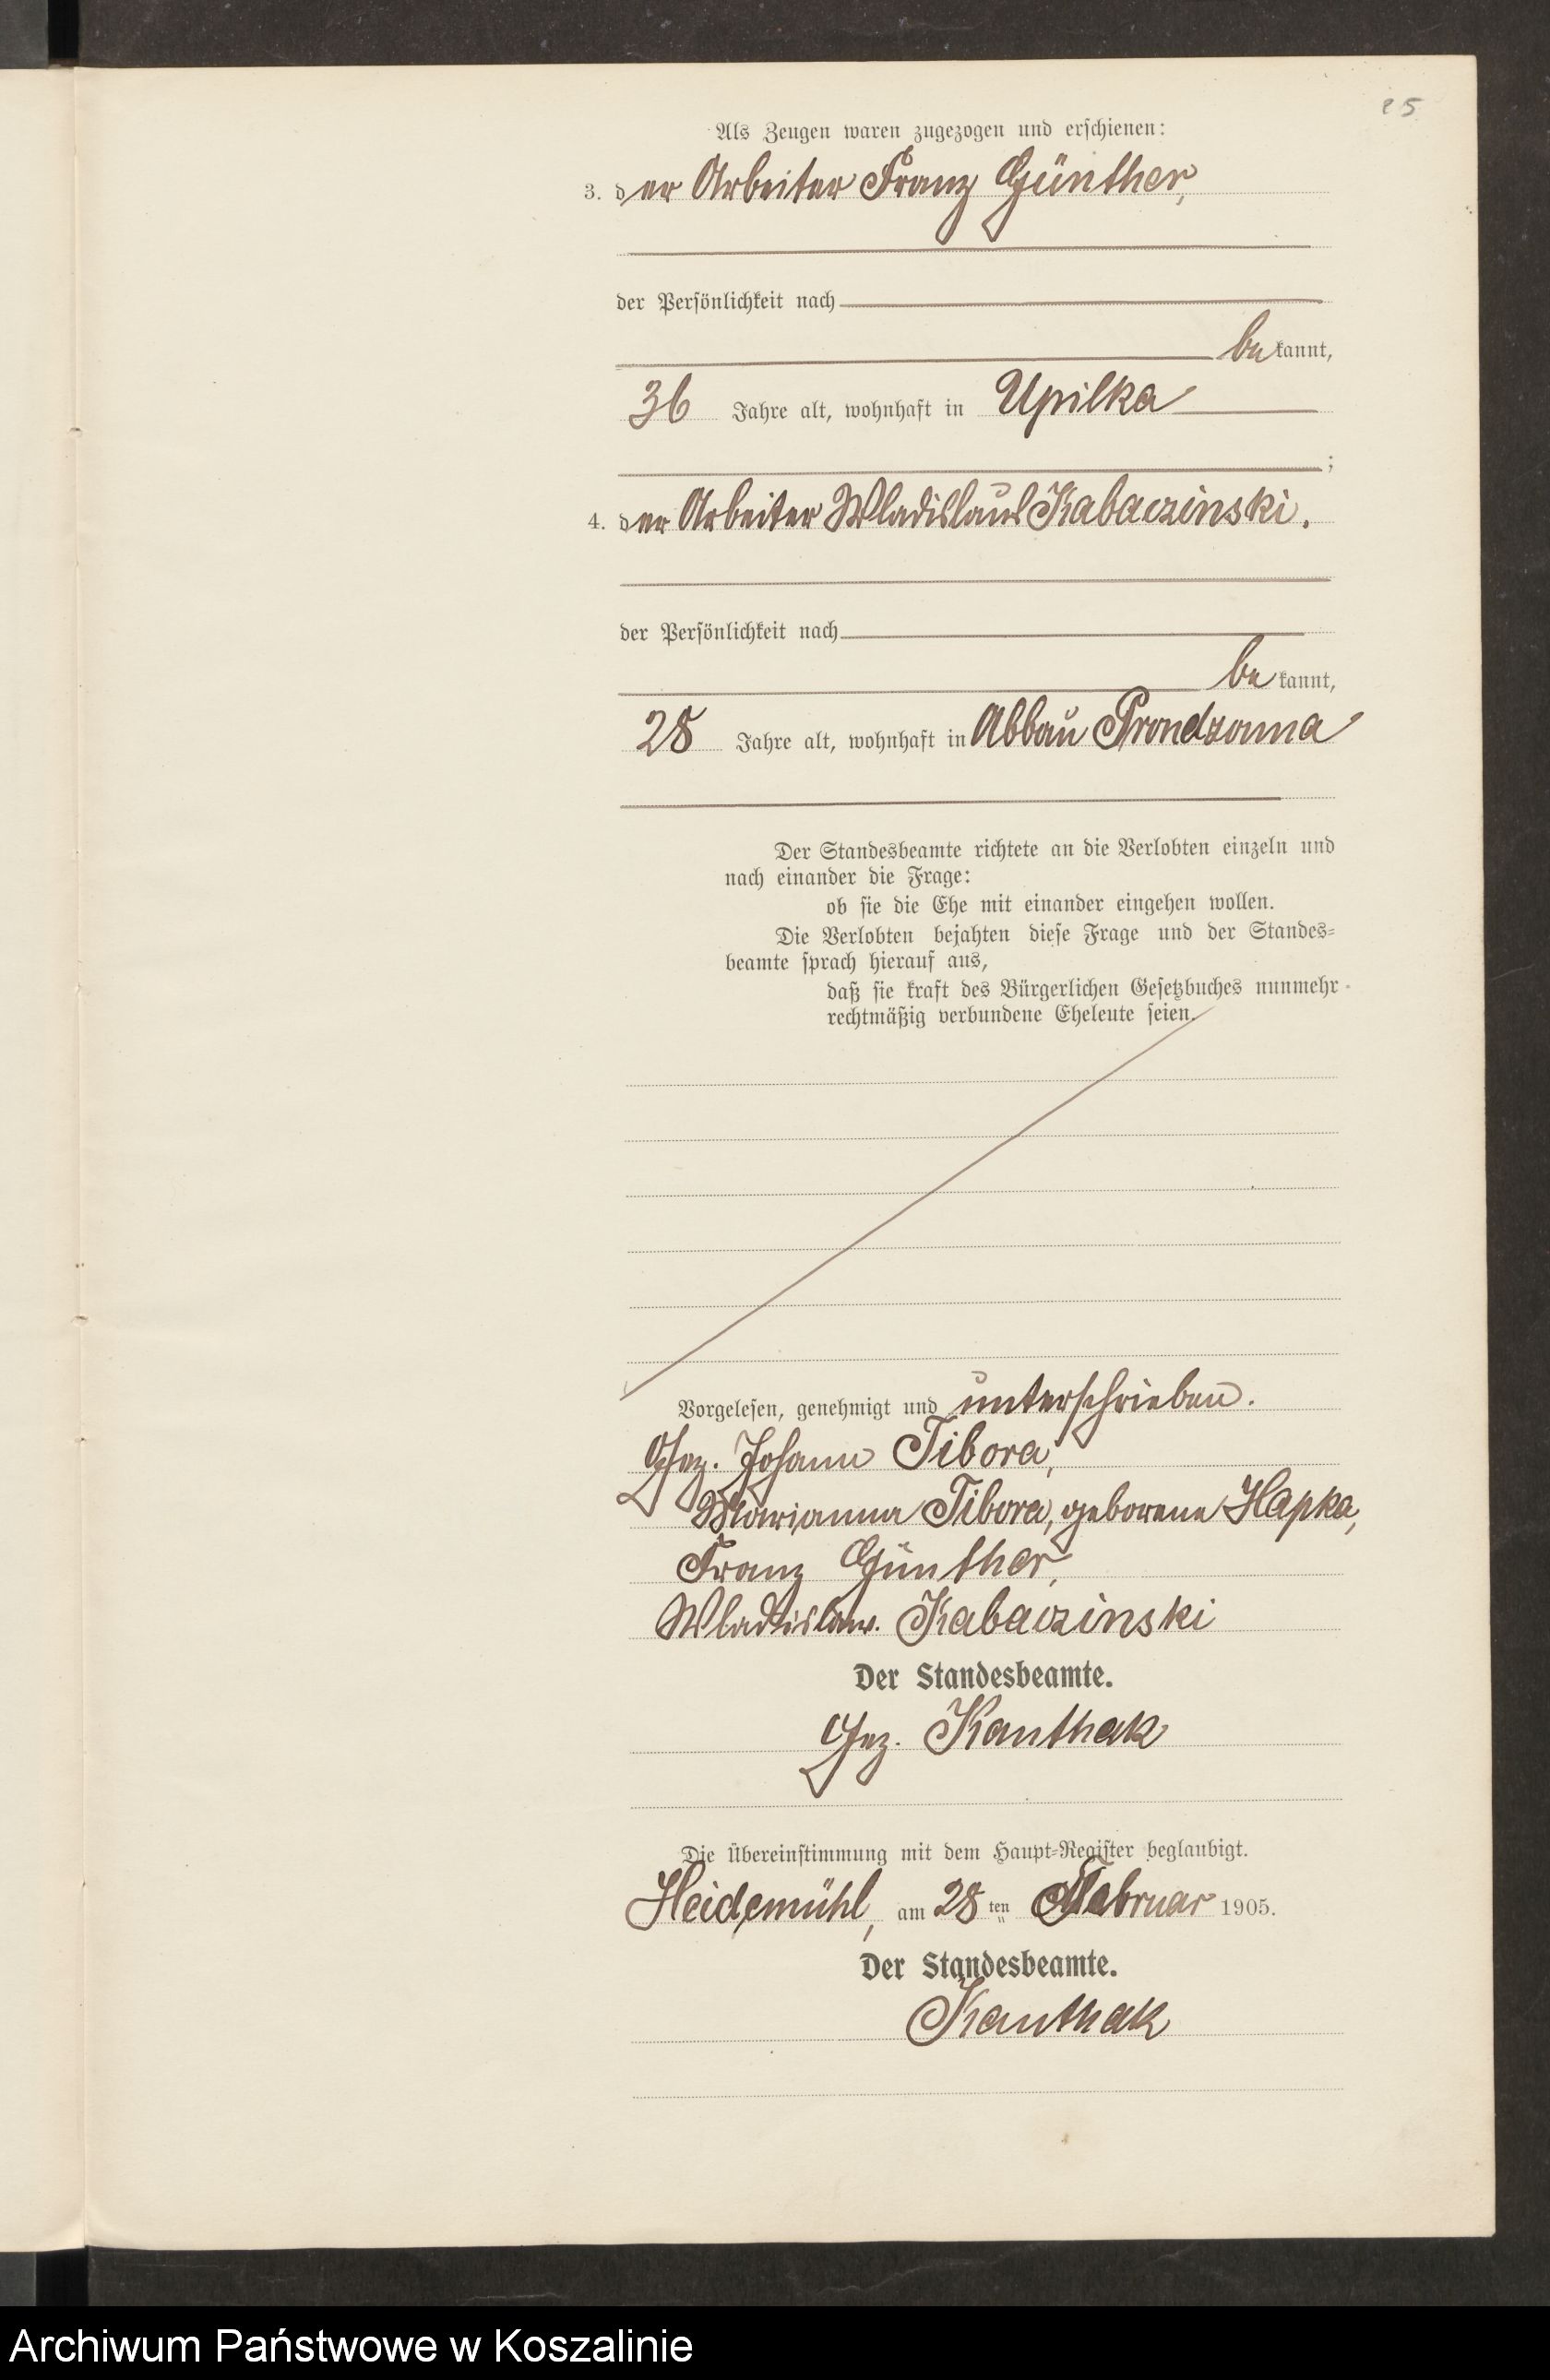 25
Als Zeugen waren zugezogen und erschienen:
3. der Arbeiter Franz Günther,
der Persönlichkeit nach
bekannt,
36 Jahre alt, wohnhaft in Upilka
;
4. der Arbeiter Wladislaus Kabaczinski.
der Persönlichkeit nach
bekannt,
28 Jahre alt, wohnhaft in Abbau Prondzonna
Der Standesbeamte richtete an die Verlobten einzeln und
nach einander die Frage:
ob sie die Ehe mit einander eingehen wollen.
Die Verlobten bejahten diese Frage und der Standes=
beamte sprach hierauf aus,
daß sie kraft des Bürgerlichen Gesetzbuches nunmehr
rechtmäßig verbundene Eheleute seien.
Vorgelesen, genehmigt und unterschrieben.
Gez. Johann Tibora,
Marianna Tibora, geborene Hapka,
Franz Günther,
Wladislaw. Kabaczinski
Der Standesbeamte.
Gez. Kanthak
Die Übereinstimmung mit dem Haupt=Register beglaubigt.
Heidemühl, am 28 ten Februar 1905.
Der Standesbeamte.
Kanthak
Archiwum Państwowe w Koszalinie